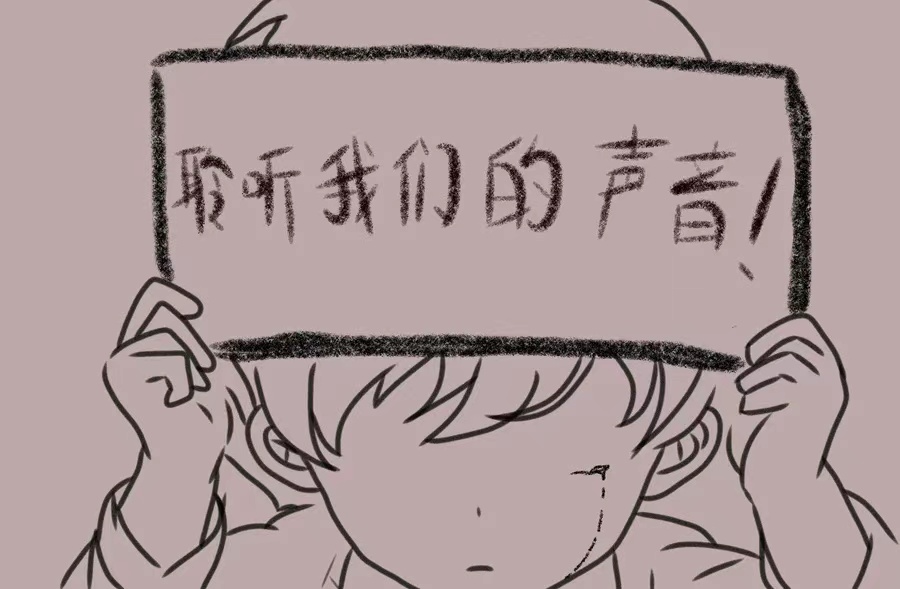 聆听我们的声音!